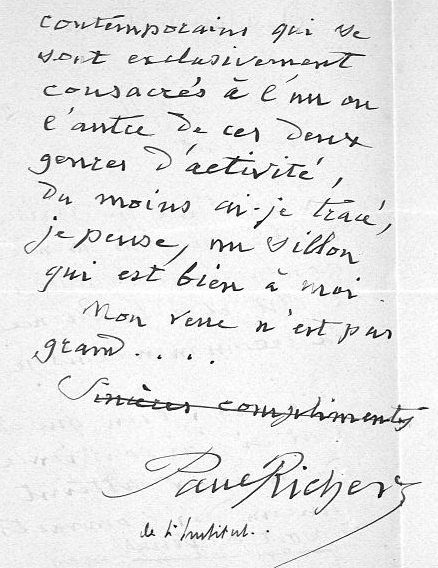 contemporains qui se
sont exclusivement
consacrés à l'un ou
l'autre de ces deux
genres d'activité,
Du moins ai-je tracé,
je pense, un sillon
qui est bien à moi
Mon verre n'est pas
grand....
Sincères compliments
Paul Richer
de l'Institut..